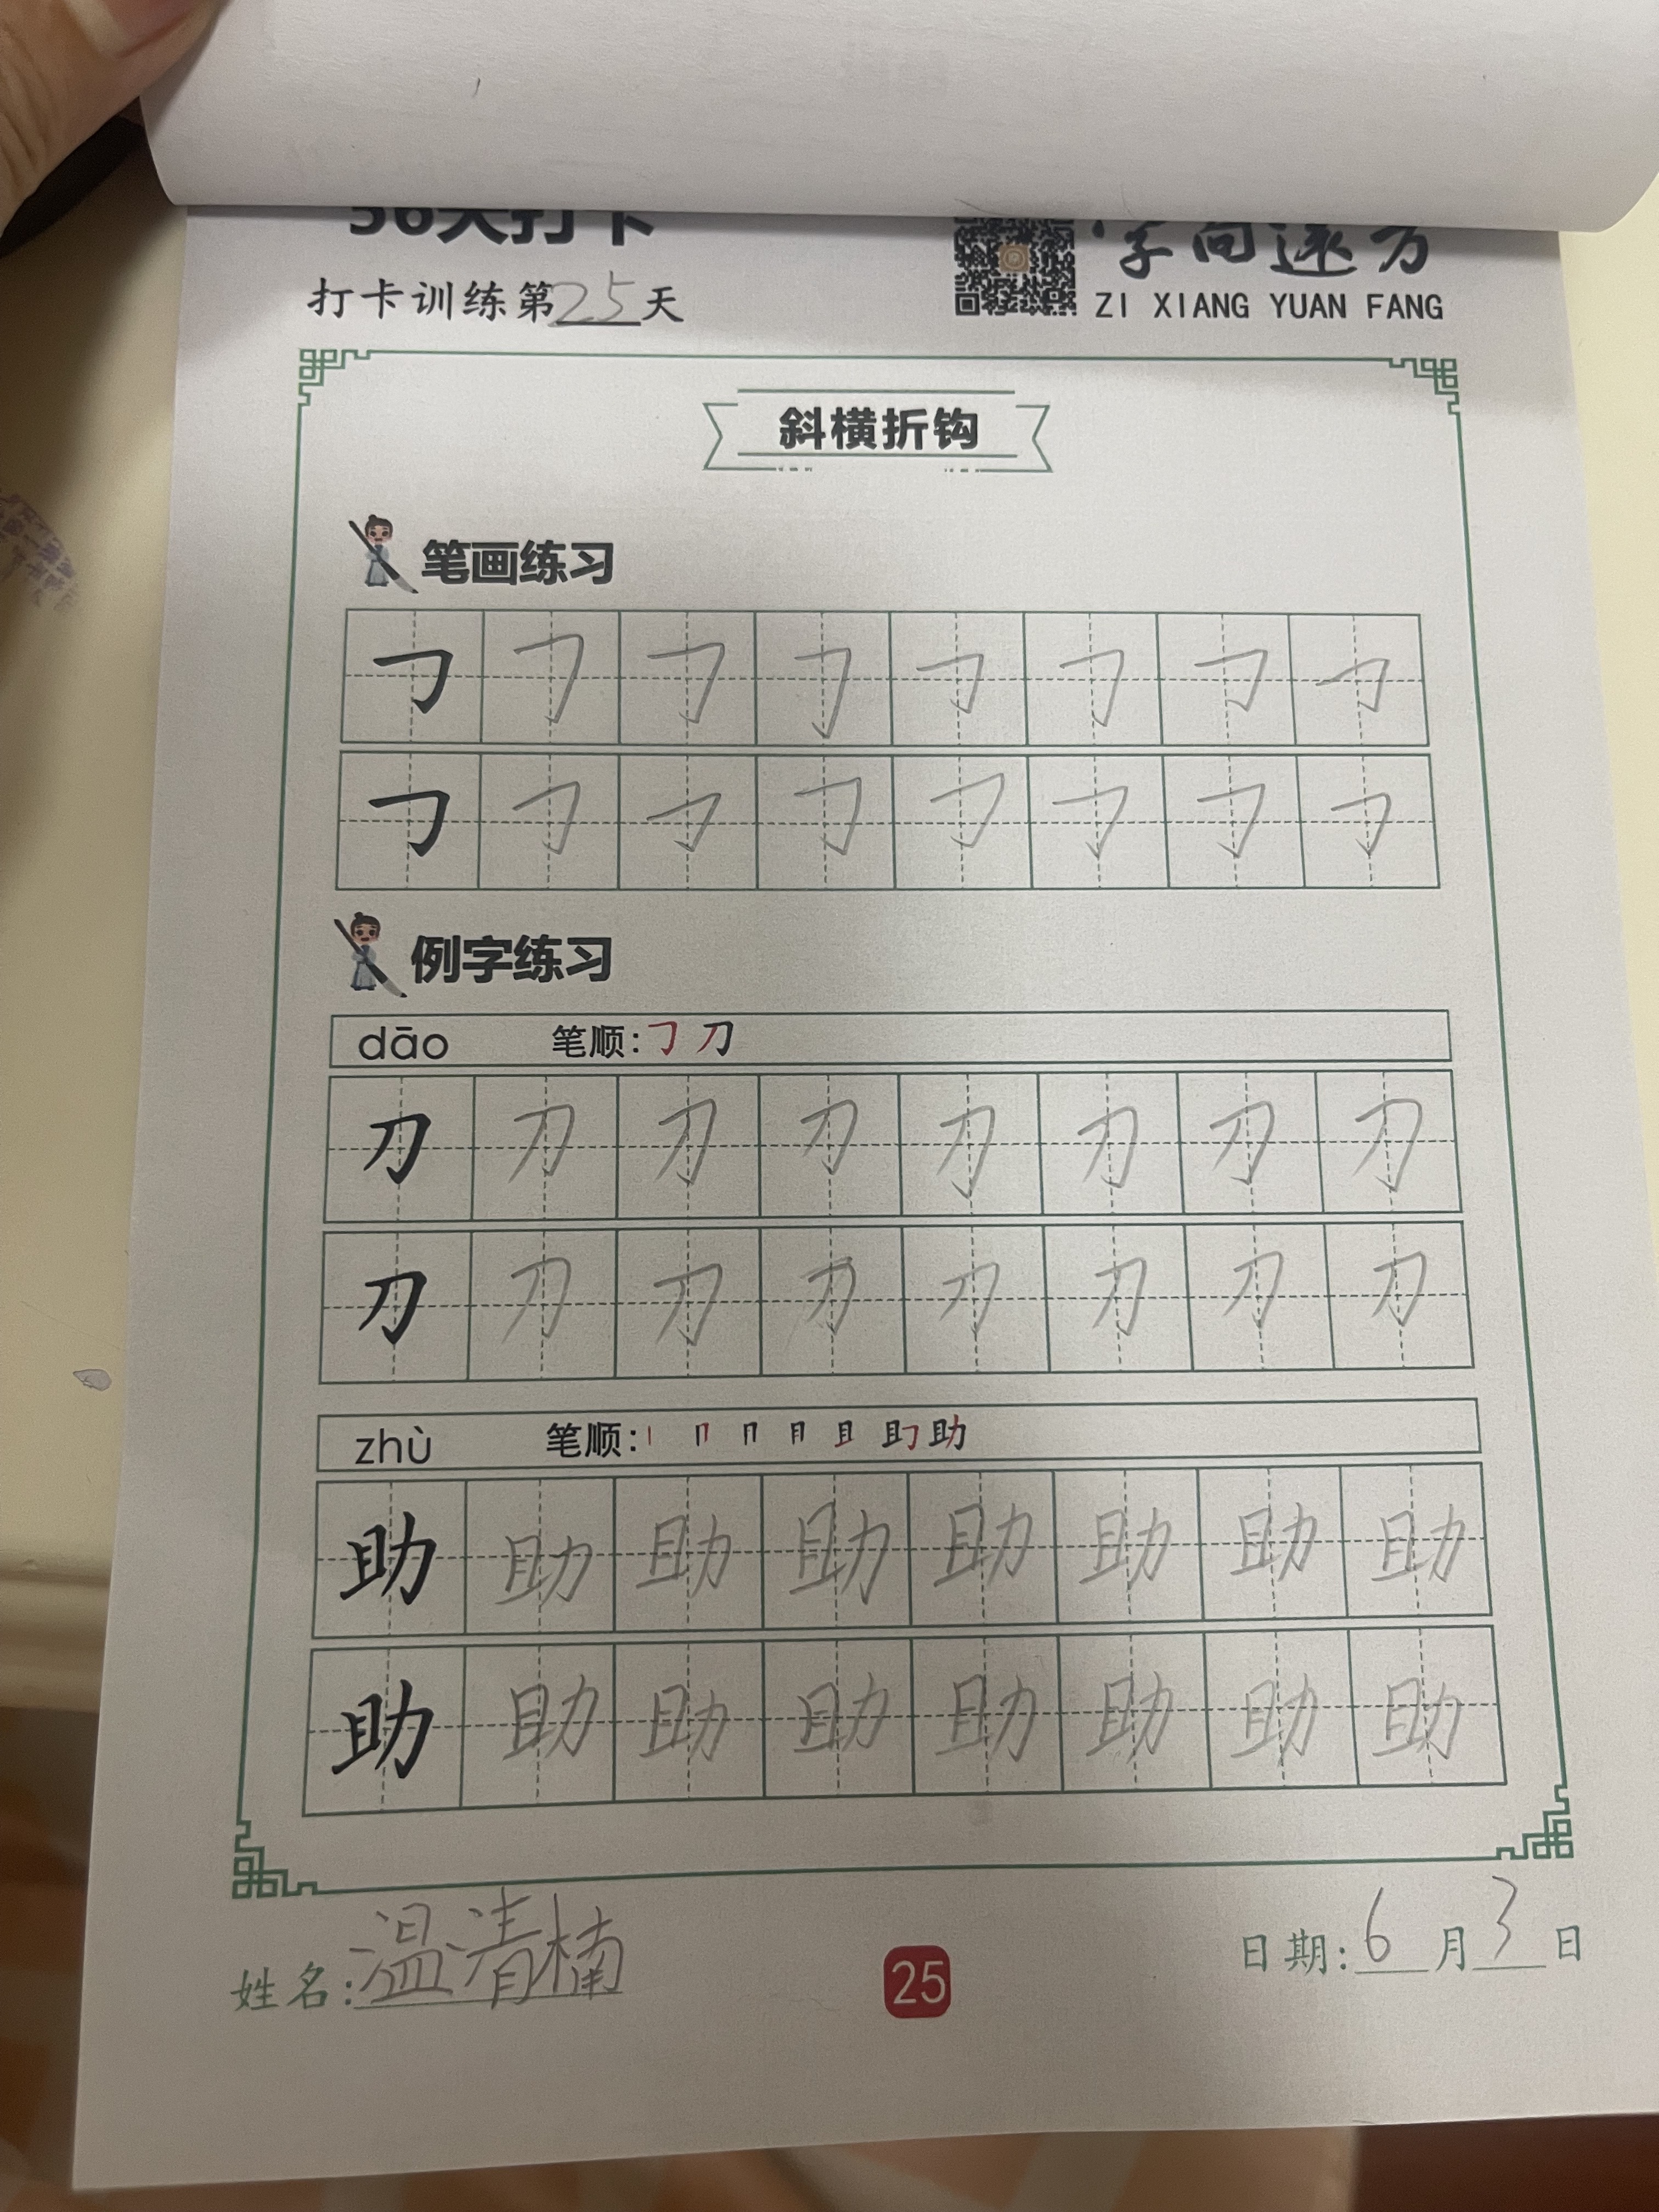 打卡训练第25天
字向远方
ZI XIANG YUAN FANG
斜横折钩
笔画练习
例字练习
dāo 笔顺:㇆ 刀
刀 刀 刀 刀 刀 刀 刀 刀
刀 刀 刀 刀 刀 刀 刀 刀
zhù 笔顺: 助
助 助 助 助 助 助 助 助
助 助 助 助 助 助 助 助
姓名:温清楠
25
日期:6月3日